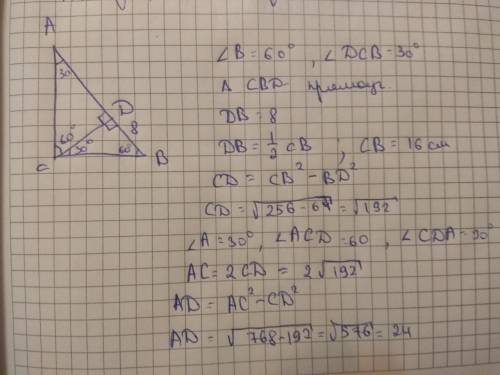 A
30°
D
8
60°
30°
60°
C
B
∠B = 60°, ∠DCB = 30°
Δ CBD - прямоуг.
DB = 8
DB = 1/2 CB, CB = 16 см
CD = CB² - BD²
CD = √256 - 64 = √192
∠A = 30°, ∠ACD = 60, ∠CDA = 90°
AC = 2CD = 2√192
AD = AC² - CD²
AD = √768 - 192 = √576 = 24